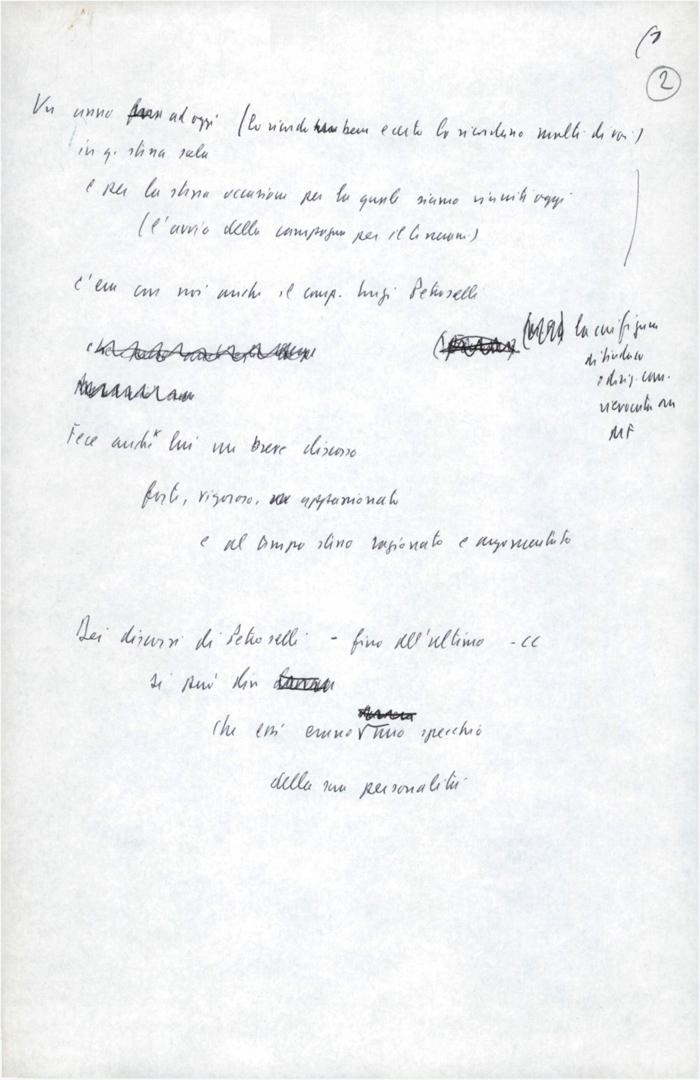 2
Un anno ad oggi (lo ricordo bene e certo lo ricordano molti di voi)
in q. stessa sala
e per la stessa occasione per la quale siamo riuniti oggi
(l'avvio della campagna per il tesseram)
c'era con noi anche il comp. Luigi Petroselli
la cui figura
di sindaco
e dirig. com.
rievocata su
Fece anch' lui un breve discorso
forte, vigoroso, appassionato
e al tempo stesso ragionato e argomentato
Dei discorsi di Petroselli - fino all'ultimo - CC
si può dire
che essi erano uno specchio
della sua personalità